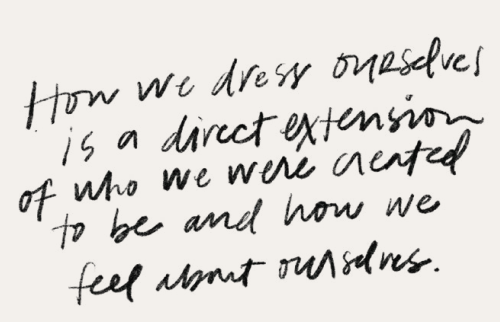 How we dress ourselves
is a direct extension
of who we were created
to be and how we
feel about ourselves.